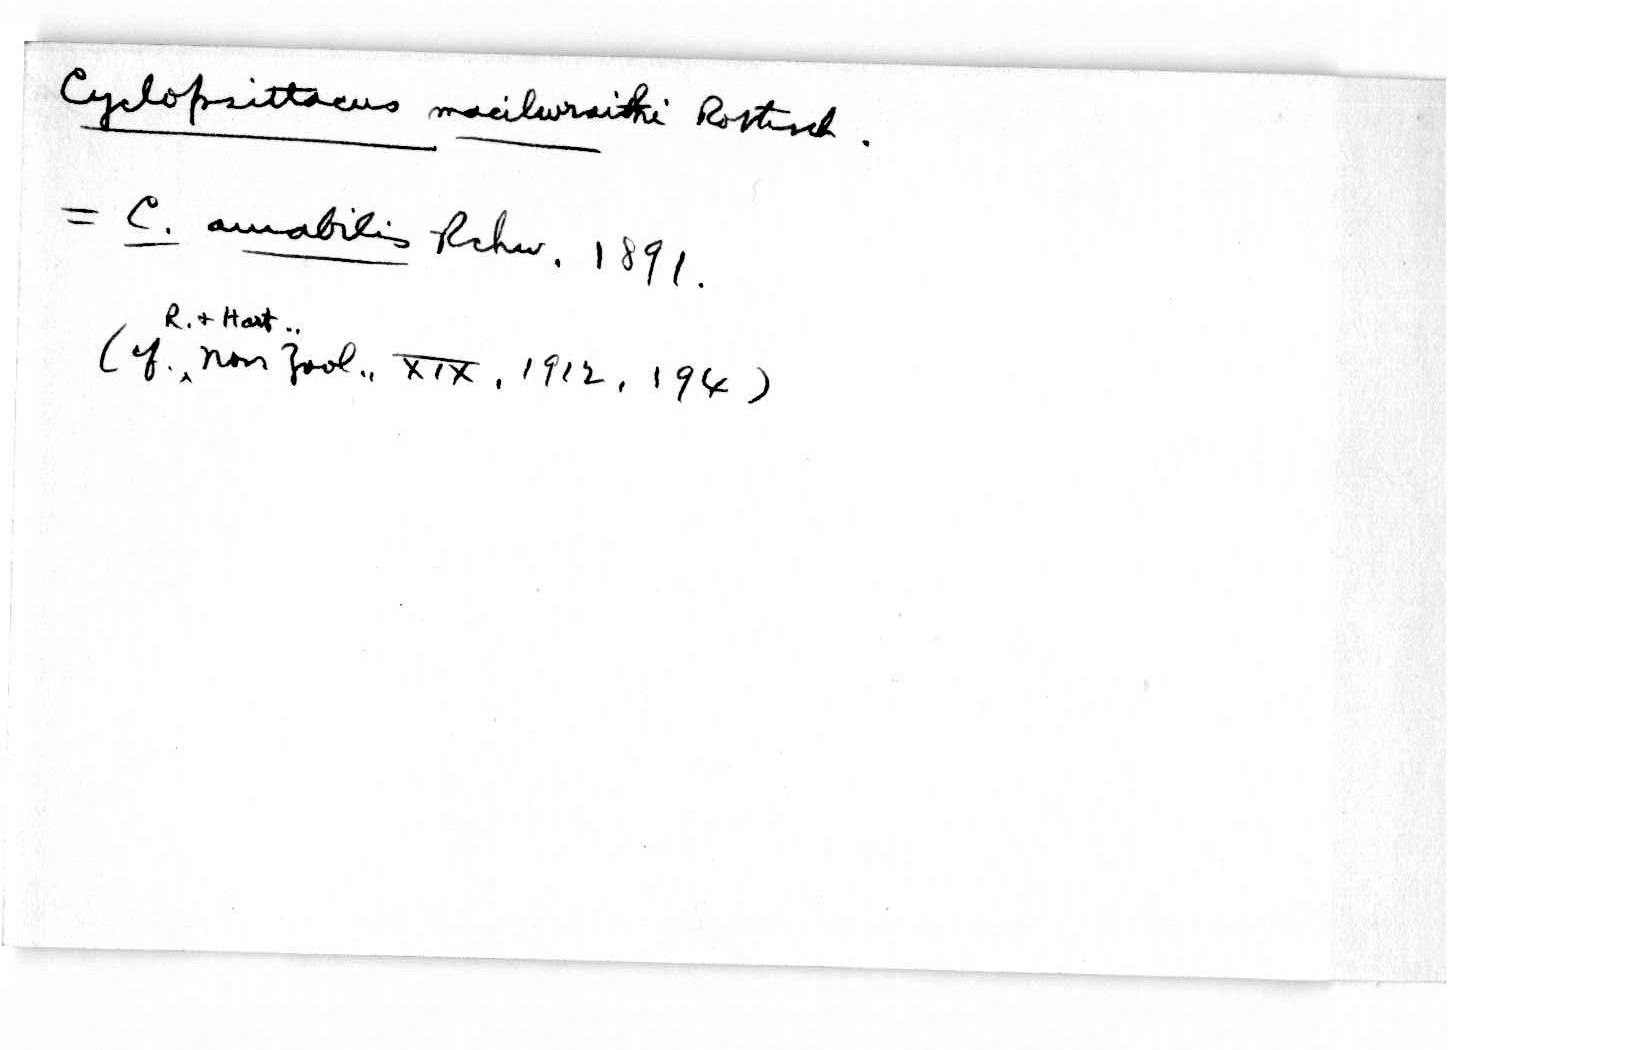 Cyclopsittacus macilwraithi Rothsch.
= C. amabilis Rchw. 1891.
R. + Hart.,
(cf., Nov Zool., XIX, 1912, 194)